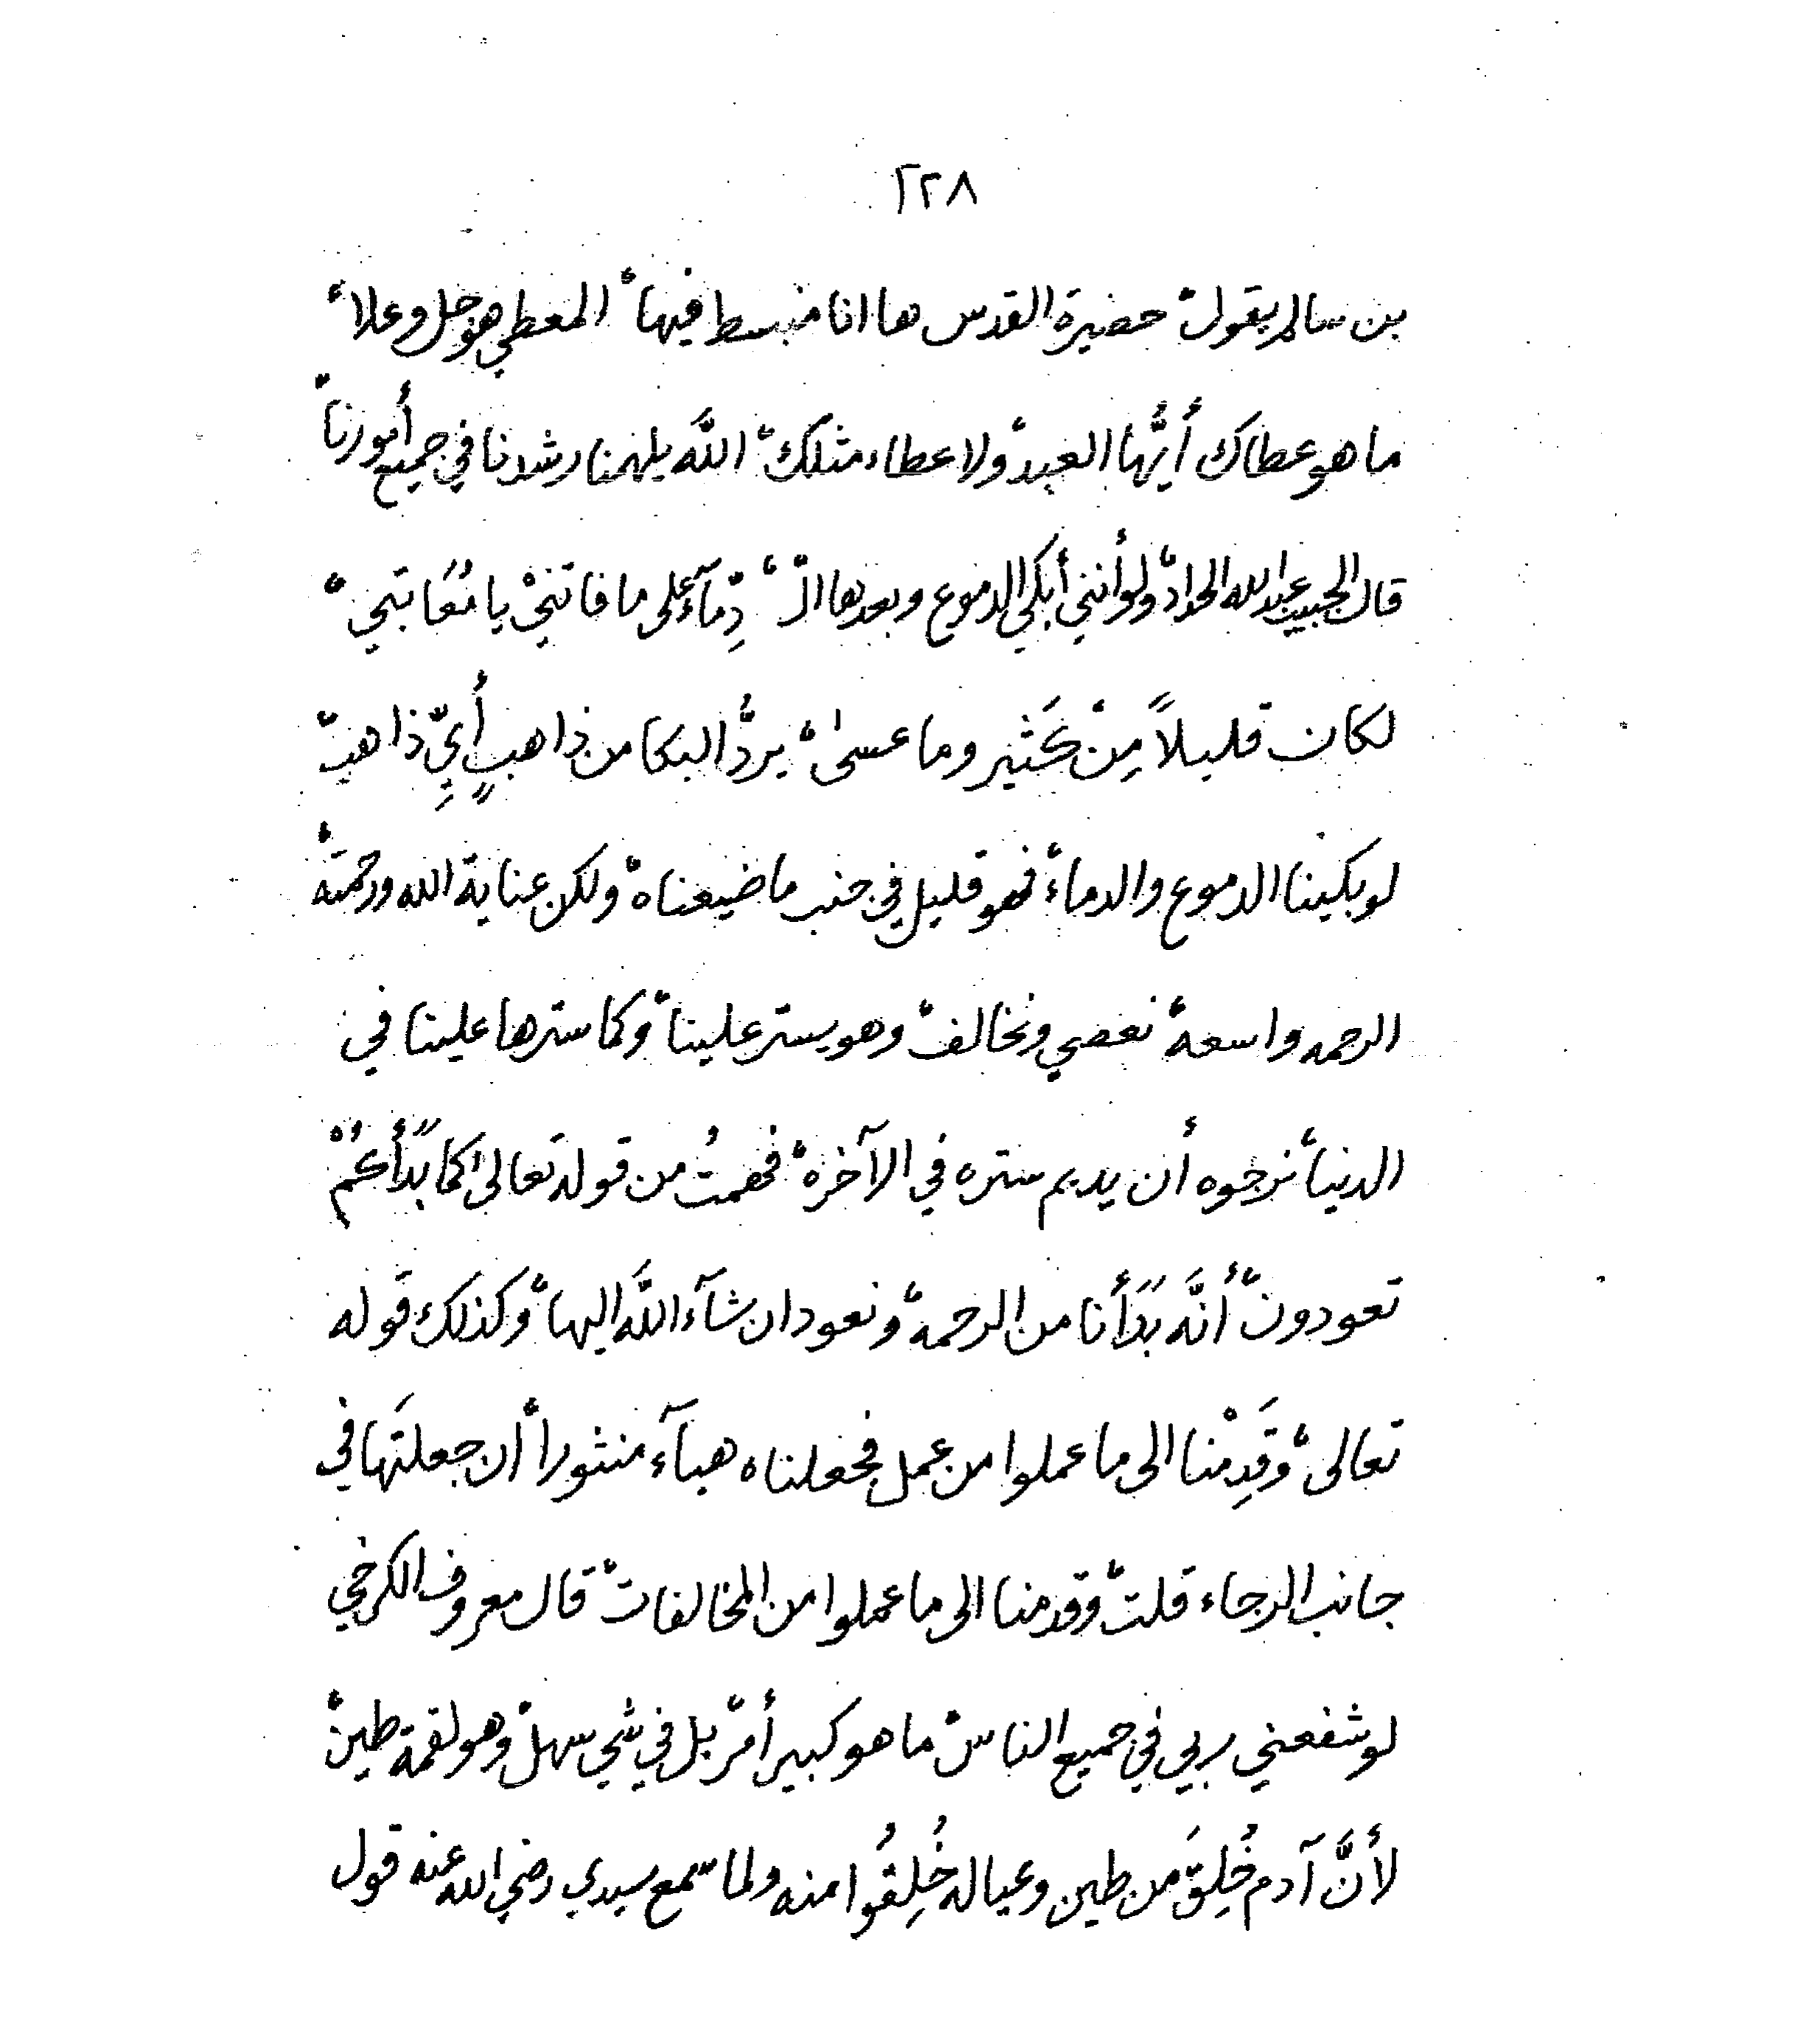 ٢٢٨
بن سالم يقول، حضيرة القدس ها انا منبسط فيها، المعطي هو جل وعلا،
ما هو عطاك أيُّها العبد، ولا عطاء مثلك، اللَّه يلهمنا رشدنا في جميع أمورنا،
قال الحبيب عبدالله الحداد، ولو أنني أبكي الدموع وبعدها الـ، دِّمآءَ على ما فاتني، يا مُعَاتبي،
لكان قليلاً مِنْ كَثير وما عسىٰ، يردُّ البكا من ذاهبٍ أَيِّ ذاهب،
لو بكينا الدموع والدماء، فهو قليل في جنب ما ضيعناه، ولكن عناية الله ورحمته،
الرحمه واسعة، نعصي ونخالف، وهو يستر علينا، وكما سترها علينا في
الدنيا، نرجوه أن يديم ستره في الآخره، فهمتُ من قوله تعالى، كما بَدَأَكُمْ
تعودون، أَنَّه بَدَأَنا من الرحمه، ونعود ان شآء اللَّه اليها، وكذلك قوله
تعالى، وَقَدِمْنا الى ما عملوا من عمل فجعلناه هبآءَ منثورا، ان جعلتَها في
جانب الرجاء قلت، وقدمنا الى ما عملوا من المخالفات، قال معروف الكرخي
لو شفعني ربي في جميع الناس، ما هو كبير أمر، بل في شي سهل، وهو لقمة طين،
لأنَّ آدم خُلِقَ من طين وعياله خُلِقُوا منه ولما سمع سيدي رضي الله عنه قول